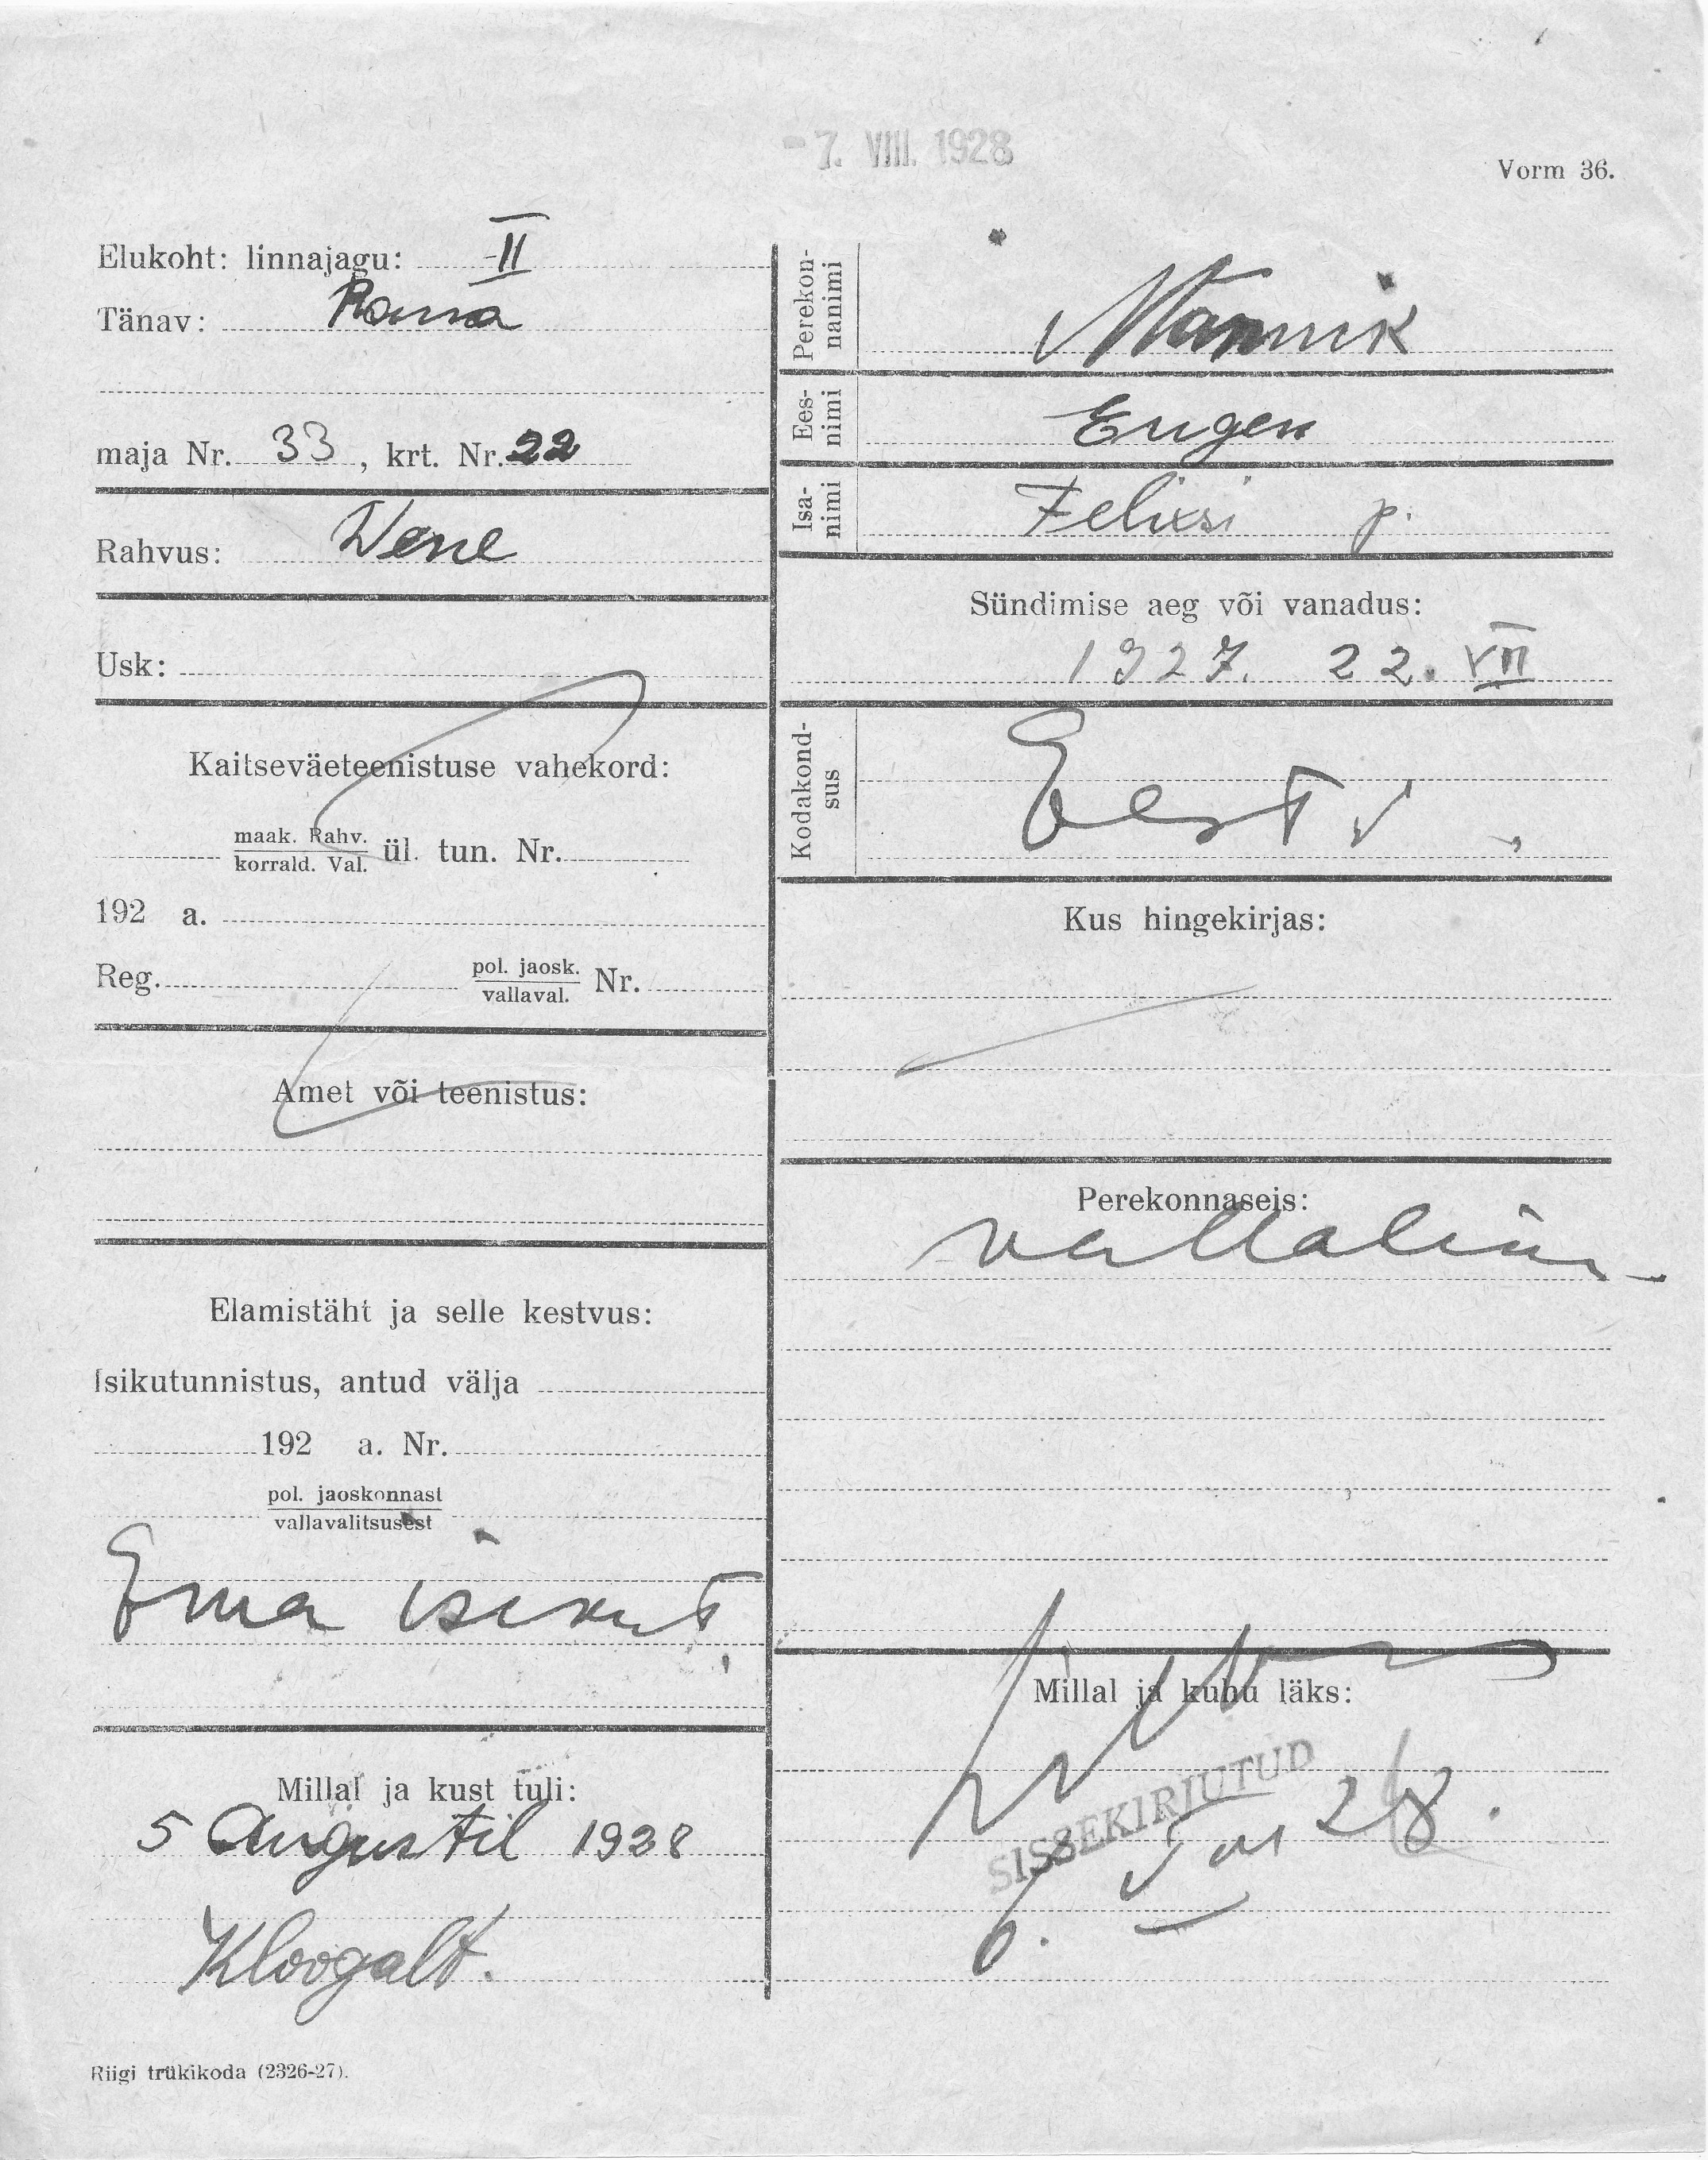 -7. VIII. 1928
Vorm 36.
Elukoht: linnajagu: II
Tänav:
maja Nr. 33, krt. Nr. 22
Rahvus: Wene
Usk:
Kaitseväeteenistuse vahekord:
maak. Rahv.
korrald. Val. ül. tun. Nr.
192 a.
Reg. pol. jaosk.
vallaval. Nr.
Amet või teenistus:
Elamistäht ja selle kestvus:
Isikutunnistus, antud välja
192 a. Nr.
pol. jaoskonnast
vallavalitsusest
Ema isikut.
Millal ja kust tuli:
5 Augustil 1928
Kloogalt.
Riigi trükikoda (2326-27).
Perekon-
nanimi Mannik
Ees-
nimi Eugen
Isa-
nimi Felixsi p.
Sündimise aeg või vanadus:
1927. 22. VII
Kodakond-
sus Eesti
Kus hingekirjas:
Perekonnaseis:
vallaline
Millal ja kuhu läks:
SISSEKIRJUTUD
28.